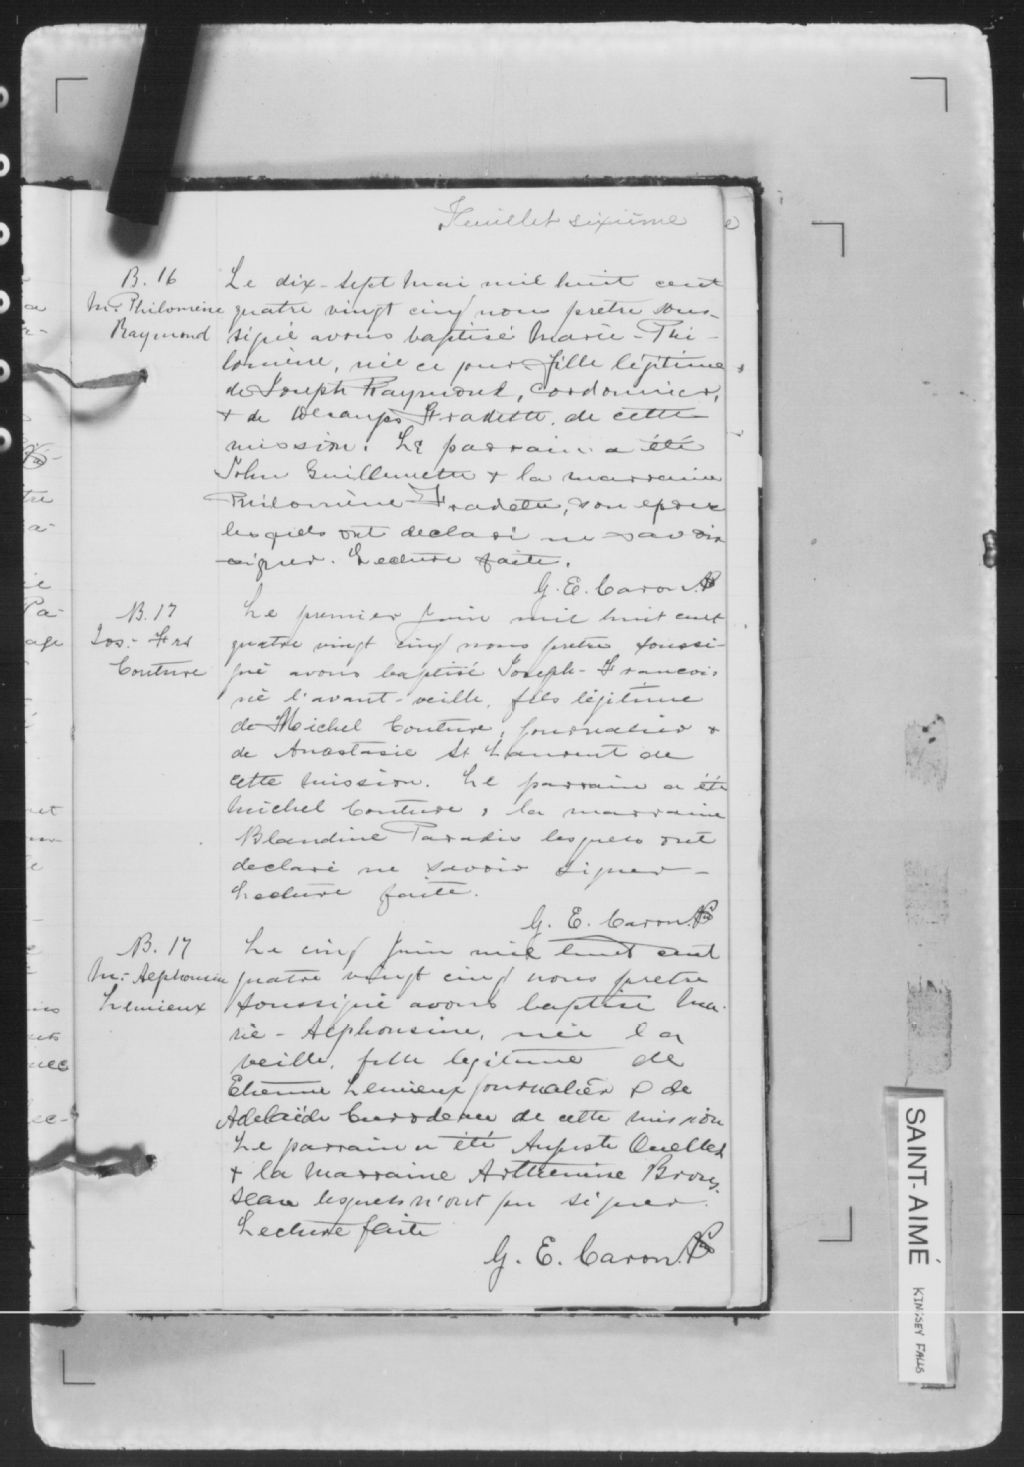 Feuillet sixième
B. 16
M. Philomène
Raymond
Le dix-sept Mai mil huit cent
quatre vingt cinq nous prêtre sous-
signé avons baptisé Marie-Phi-
lomène, née ce jour fille légitime
de Joseph Raymond, Cordonnier,
+ de Fradette, de cette
mission. Le parrain a été
John Guillemette + la marraine
Philomène Fradette, son epouse
lesquels ont declaré ne savoir
signer. Lecture faite.
G. E. Caron. P
B. 17
Jos.- Frs
Couture
Le premier Juin mil huit cent
quatre vingt cinq nous prêtre soussi-
gné avons baptisé Joseph-François
né l'avant-veille, fils légitime
de Michel Couture, journalier +
de Anastasie St Laurent de
cette mission. Le parrain a été
Michel Couture, la marraine
Blandine Paradis lesquels ont
declaré ne savoir signer-
Lecture faite.
G. E. Caron. P
B. 17
M.- Alphonsine
Lemieux
Le cinq Juin mil huit cent
quatre vingt cinq nous prêtre
soussigné avons baptisé Ma-
rie-Alphonsine, née la
veille, fille légitime de
Etienne Lemieux journalier & de
Adelaïde de cette mission
Le parrain a été Auguste Ouellet
+ la Marraine Arthemise Brous-
seau lesquels n'ont pu signer.
Lecture faite
G. E. Caron. P
SAINT-AIMÉ
KINGSEY FALLS